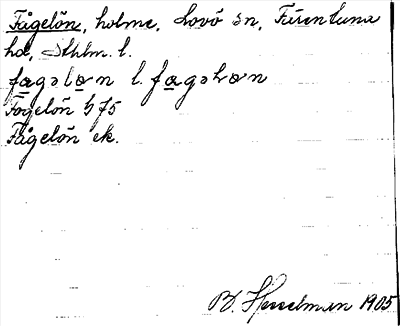 Fågelön, holme, Lovö sn, Färentuna
hd, Sthlm. l.
fa̲gəlo̲n l. fa̲gəhon
Fogelön G 75
Fågelön ek.
B. Hesselman 1905